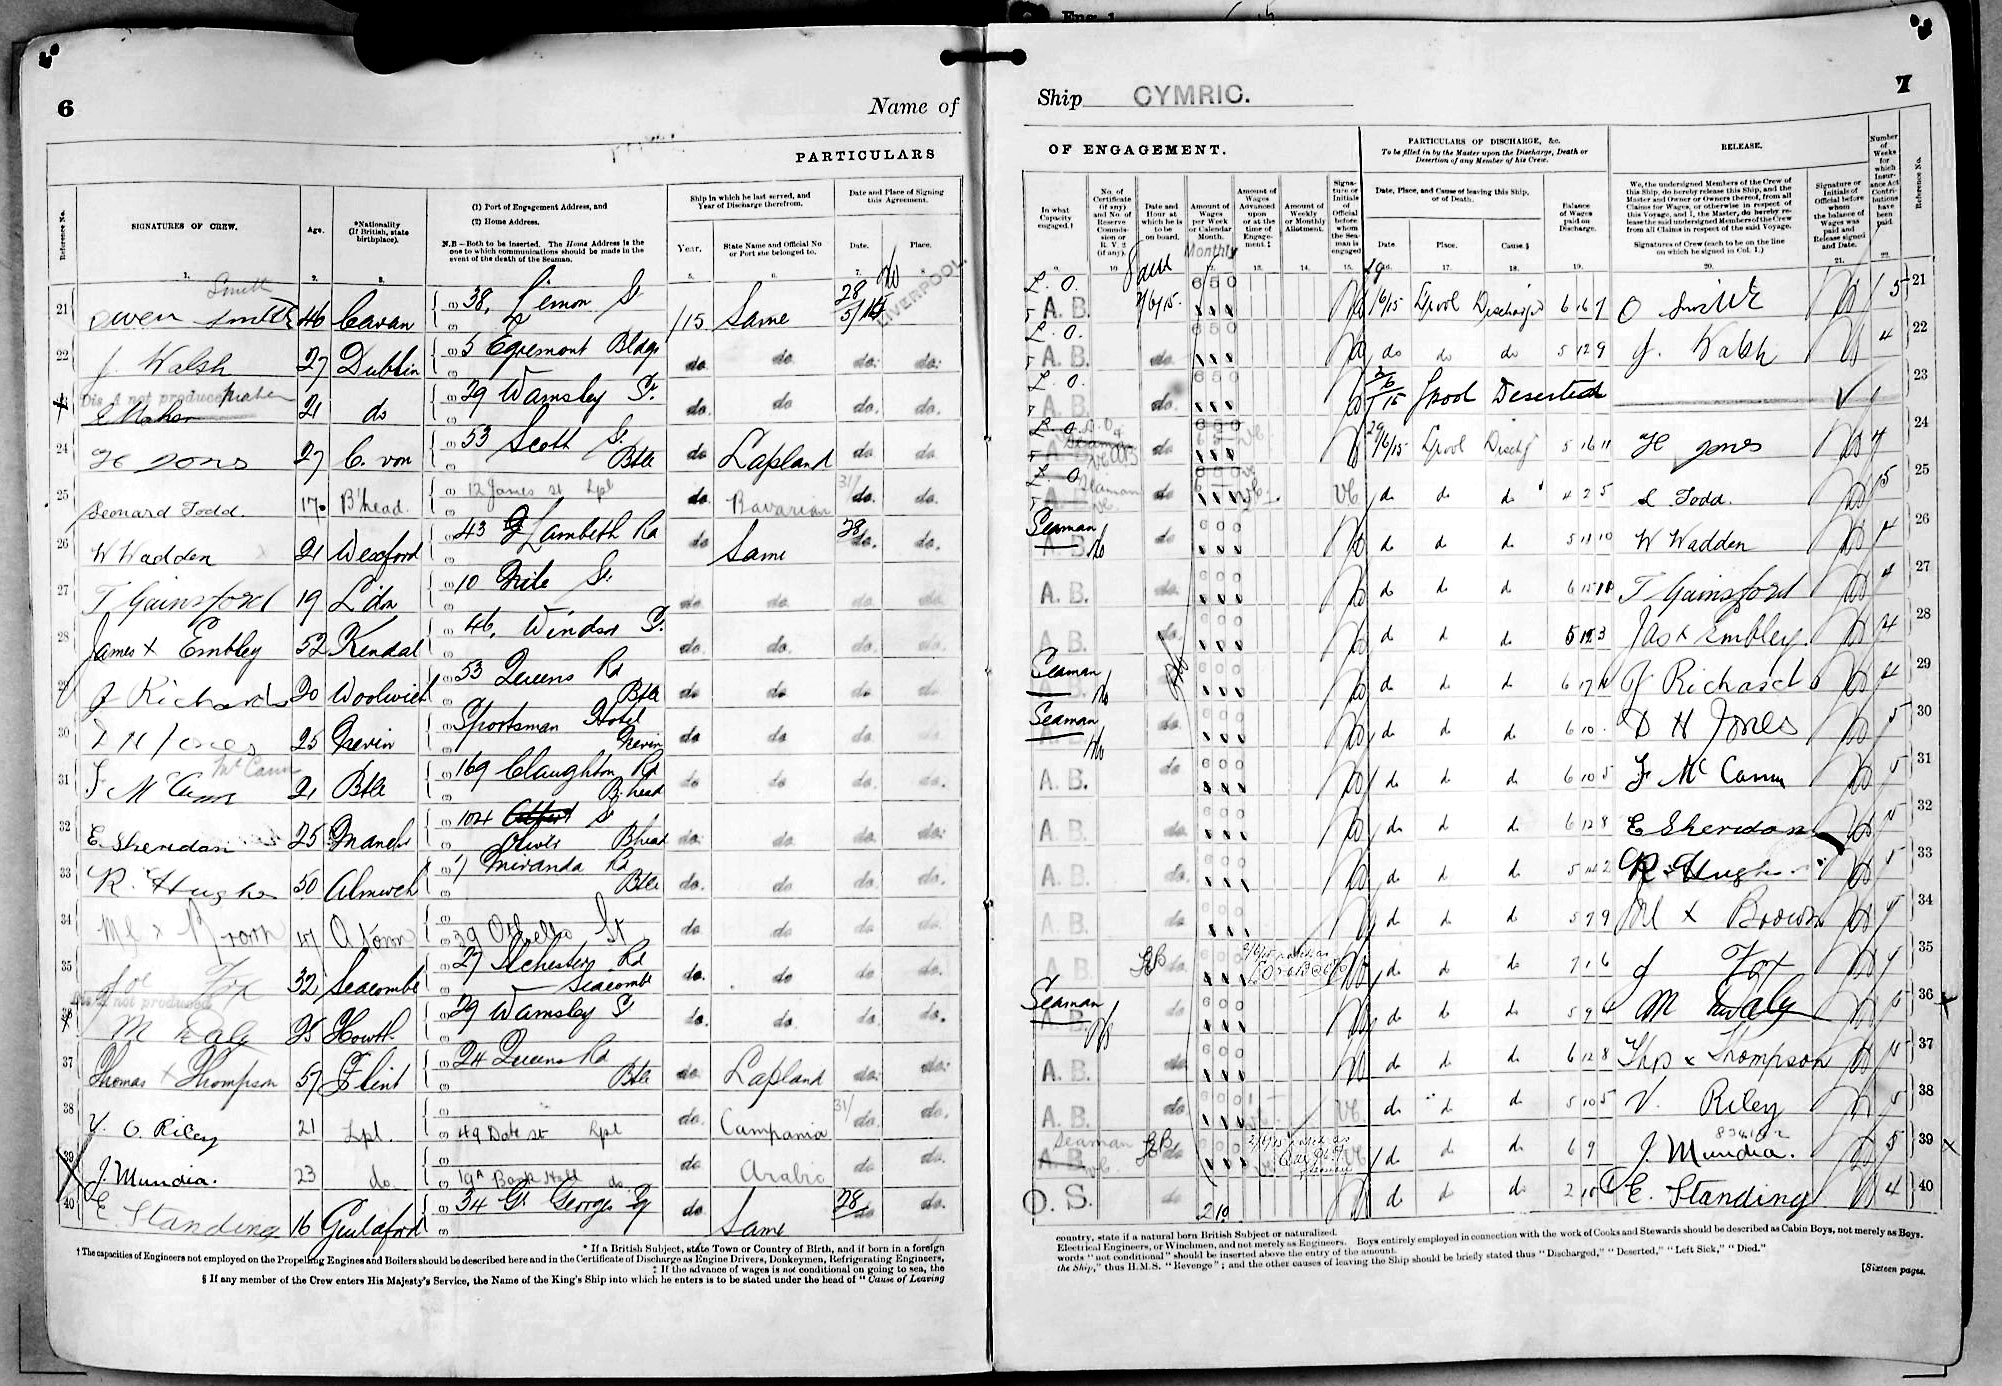 6
Name of
PARTICULARS
Reference No.
SIGNATURES OF CREW.
Age.
*Nationality (If British, state birthplace).
(1) Port of Engagement Address, and
(2) Home Address.
N.B.—Both to be inserted. The Home Address is the one to which communications should be made in the event of the death of the Seaman.
Ship in which he last served, and Year of Discharge therefrom.
Year.
State Name and Official No or Port she belonged to.
Date and Place of Signing this Agreement.
Date.
Place.
LIVERPOOL.
21 Owen Smith Smith 46 Cavan 38, Lemon St /15 Same 28/5/15
22 J. Walsh 27 Dublin 5 Egremont Bldgs do. do. do. do.
Dis A not produced Maher
23 21 do 29 Wamsley St. do. do. do. do.
24 H Jones 27 C. von 53 Scott St. Btle do Lapland do. do.
25 Leonard Todd. 17. B'head. 12 James st Lpl do. Bavarian 31/ do. do.
26 W Wadden 21 Wexford 43 Lambeth Rd do Same 28 do. do.
27 T Gainsford 19 L'don 10 Nile St. do. do. do. do
28 James x Embley 52 Kendal 46, Windsor St. do. do. do. do.
29 J Richards 20 Woolwich 53 Queens Rd Btle do do do. do
30 D H Jones 25 Nevin Sportsman Hotel Nevin do do do. do.
31 F McCann Mc Cann 21 Btle 169 Claughton Rd B.head do do. do. do.
32 E. Sheridan 25 Manchr 104 Oliver St B'head do. do. do. do.
33 R. Hughes 50 Almwch 7 Miranda Rd Btle do. do. do. do.
34 Ml x Brown 29 Othello St do. do. do. do.
35 Joe Fox 32 Seacombe 27 Ilchester Rd Seacombe do. do do. do.
Dis A not produced
36 M Daly 25 Howth 29 Wamsley St do. do. do. do.
37 Thomas x Thompson 57 Flint 24 Queens Rd Btle do. Lapland do. do.
38 V. O. Riley 21 Lpl. 49 Date st Lpl do. Campania 31/ do. do.
39 J. Mundia. 23 do. 19A Bank Hall do do Arabic do. do.
40 E Standing 16 Guildford 34 Gt. Georges Sq do. Same 28 do do.
* If a British Subject, state Town or Country of Birth, and if born in a foreign
† The capacities of Engineers not employed on the Propelling Engines and Boilers should be described here and in the Certificate of Discharge as Engine Drivers, Donkeymen, Refrigerating Engineers,
‡ If the advance of wages is not conditional on going to sea, the
§ If any member of the Crew enters His Majesty's Service, the Name of the King's Ship into which he enters is to be stated under the head of "Cause of Leaving
Ship CYMRIC.
7
OF ENGAGEMENT.
PARTICULARS OF DISCHARGE, &c.
To be filled in by the Master upon the Discharge, Death or Desertion of any Member of his Crew.
RELEASE.
Number of Weeks for which Insurance Act Contributions have been paid
Reference No.
In what Capacity engaged.†
No. of Certificate (if any) and No. of Reserve Commission or R.V.2 (if any).
Date and Hour at which he is to be on board.
Amount of Wages per Week or Calendar Month.
Monthly
Amount of Wages Advanced upon or at the time of Engagement.‡
Amount of Weekly or Monthly Allotment.
Signature or Initials of Official before whom the Seaman is engaged
Date, Place, and Cause of leaving this Ship, or of Death.
Date.
Place.
Cause.§
Balance of Wages paid on Discharge.
We, the undersigned Members of the Crew of this Ship, do hereby release this Ship, and the Master and Owner or Owners thereof, from all Claims for Wages, or otherwise in respect of this Voyage, and I, the Master, do hereby release the said undersigned Members of the Crew from all Claims in respect of the said Voyage.
Signatures of Crew (each to be on the line on which he signed in Col. 1.)
Signature or Initials of Official before whom the balance of Wages was paid and Release signed and Date.
L. O. A. B. 2/6/15. 6 5 0 L'pool Discharged 6 16 7 O Smith 5 21
L. O. A. B. do. 6 5 0 do do do 5 12 9 J. Walsh 4 22
L. O. A. B. do. 6 5 0 L'pool Deserted 23
L. O. do 29/6/15 L'pool Disch'd 5 16 11 H Jones 4 24
L. O. Seaman do d d d 4 2 5 L Todd. 5 25
Seaman A. B. do 6 0 0 d d d 5 11 10 W Wadden 4 26
A. B. 6 0 0 d d d T Gainsford 4 27
A. B. do. 6 0 0 d d d Jas x Embley. 4 28
Seaman 6 0 0 d d d J Richards 4 29
Seaman do. 6 0 0 d d d 6 10 D H Jones 5 30
A. B. do 6 0 0 d d d 6 10 5 F McCann 5 31
A. B. do. 6 0 0 d d d 6 12 8 E Sheridan 5 32
A. B. do. 6 0 0 d d d R Hughes 5 33
A. B. do. 6 0 0 d d d 5 7 9 Ml x Brown 5 34
A. B. do. 6 0 0 d d d 7 1 6 J Fox 35
Seaman A. B. 6 0 0 d d d M Daly 5 36
A. B. do. 6 0 0 d d d 6 12 8 Thos x Thompson 5 37
A. B. do 6 0 0 d d d 5 10 5 V. Riley 5 38
Seaman A. B. do 6 0 0 d d d 6 9 J. Mundia. 5 39
O. S. do 2 10 d d d E. Standing 4 40
country, state if a natural born British Subject or naturalized.
Electrical Engineers, or Winchmen, and not merely as Engineers. Boys entirely employed in connection with the work of Cooks and Stewards should be described as Cabin Boys, not merely as Boys.
words "not conditional" should be inserted above the entry of the amount.
the Ship," thus H.M.S. "Revenge"; and the other causes of leaving the Ship should be briefly stated thus "Discharged," "Deserted," "Left Sick," "Died."
[Sixteen pages.